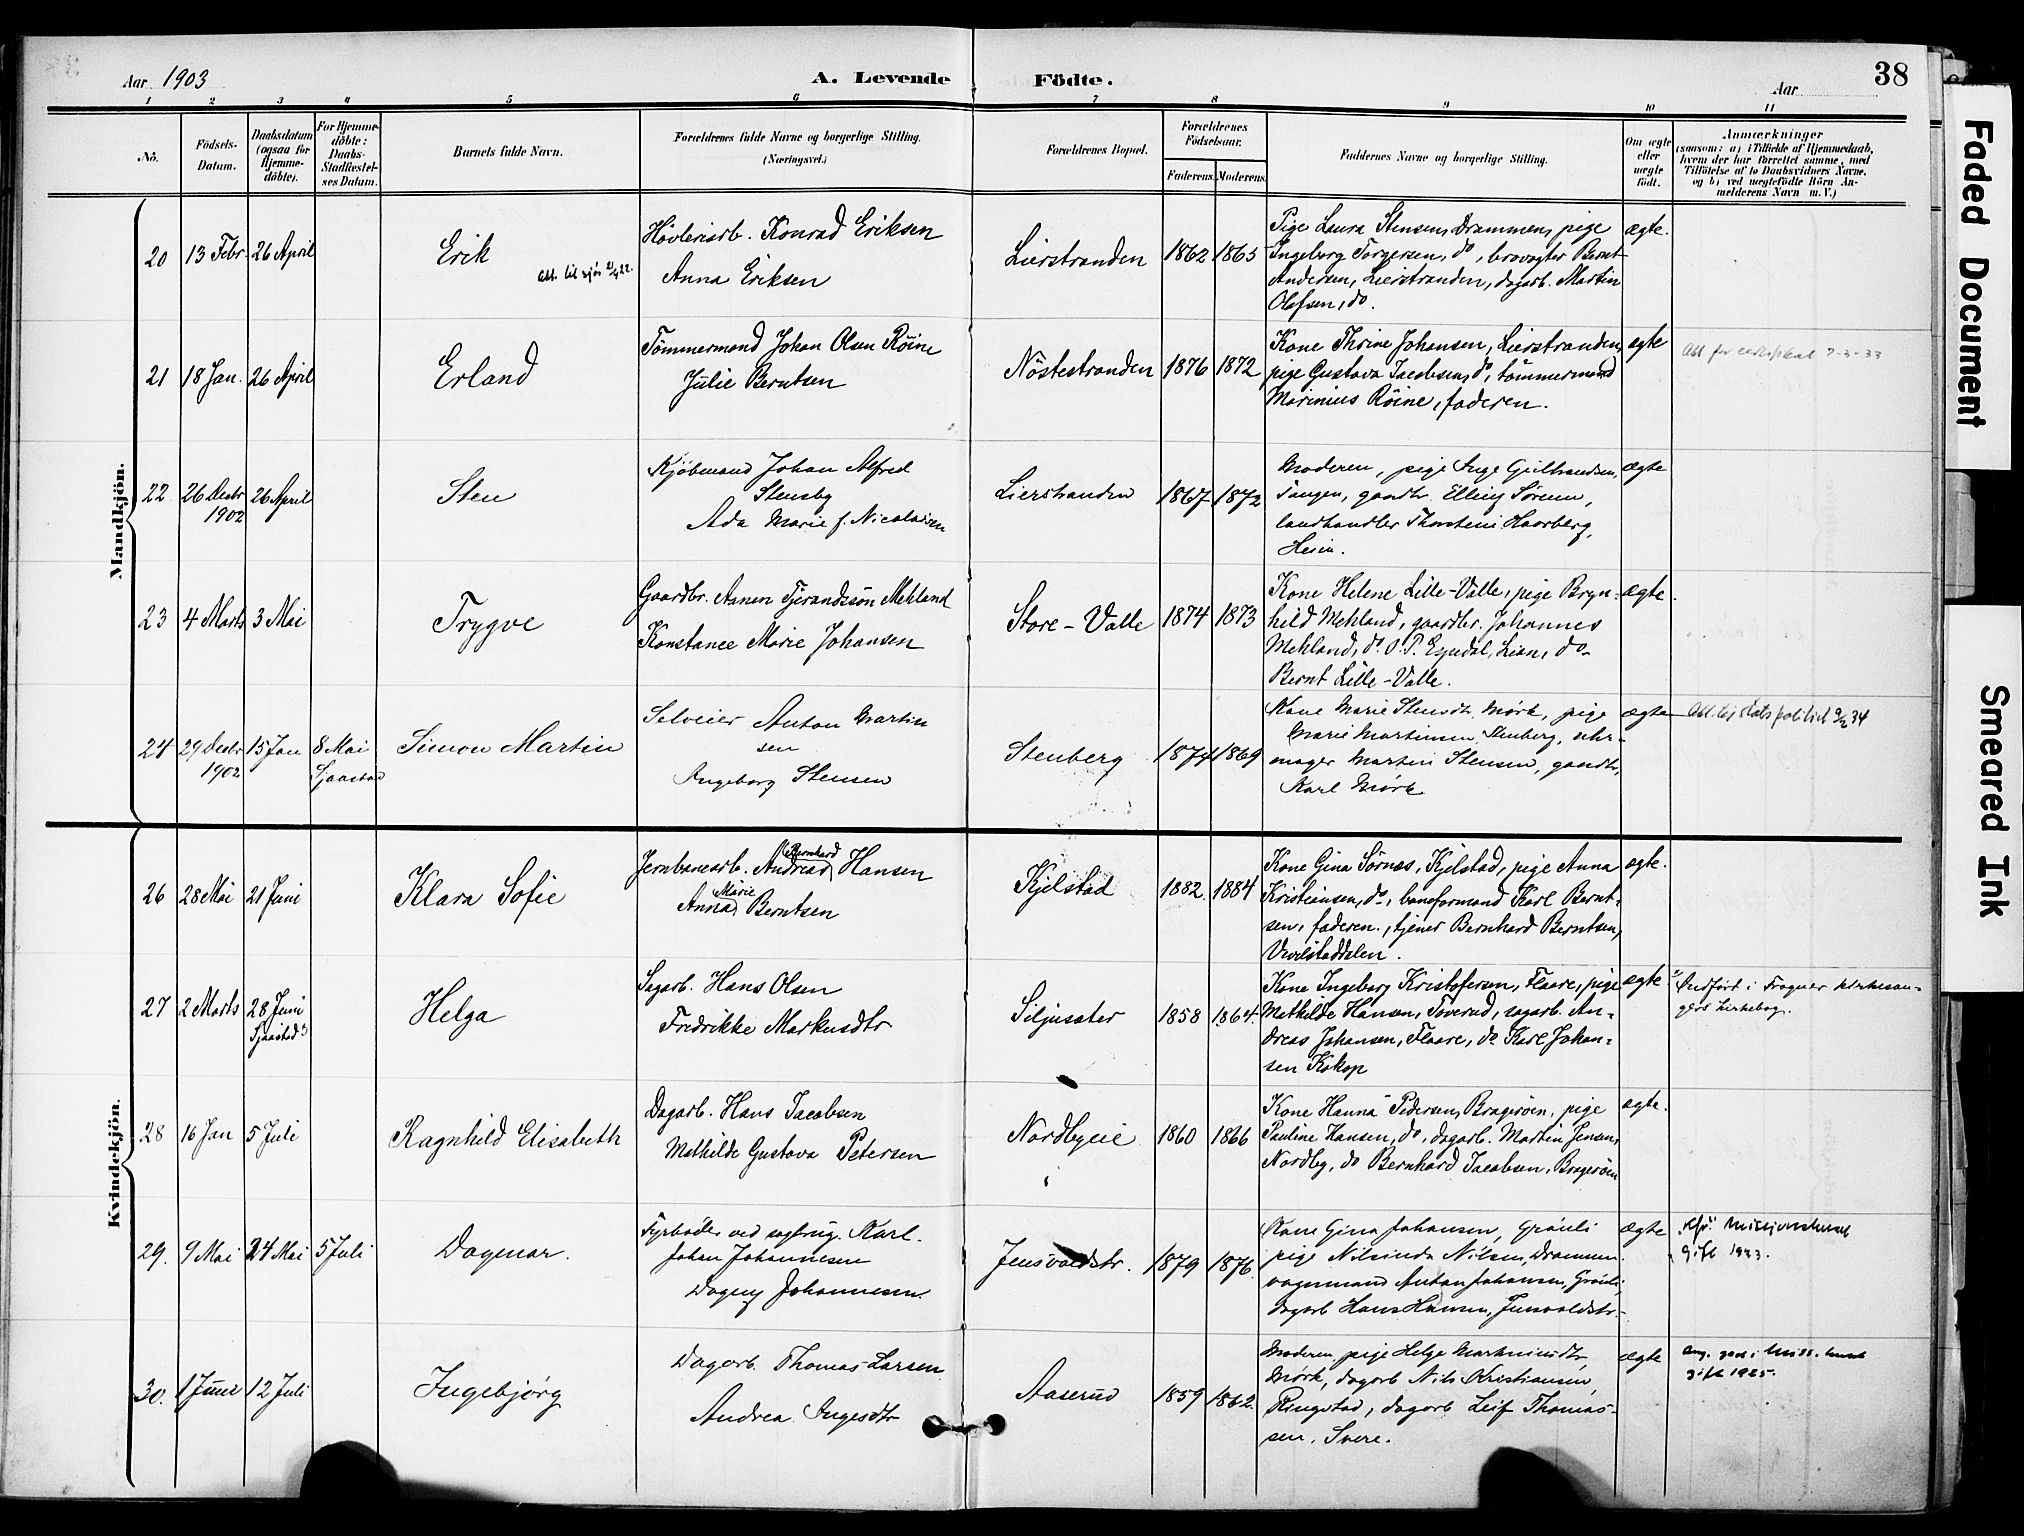 Aar 1903
A. Levende Födte.
Aar
38
1 2 3 4 5 6 7 8 9 10 11
No.
Födsels-Datum.
Daabsdatum (ogsaa for Hjemme-döbte).
For Hjemme-döbte: Daabs-Stadfestel-ses Datum.
Barnets fulde Navn.
Forældrenes fulde Navne og borgerlige Stilling. (Næringsvei.)
Forældrenes Bopæl.
Forældrenes Födselsaar.
Faderens. Moderens.
Faddernes Navne og borgerlige Stilling.
Om ægte eller uægte født.
Anmærkninger
(saasom: a) i Tilfælde af Hjemmedaab,
hvem der har forrettet samme, med
Tilföielse af to Daabsvidners Navne,
og b) ved uægtefödte Börn An-
melderens Navn m. V.)
Mandkjön.
20 13 Febr. 26 April
Erik
Att. til sjös
Høvleriarb. Konrad Eriksen
Anna Eriksen
Lierstranden 1862 1865
Pige Laura Stensen, Drammen, pige
Ingeborg Torgersen, do, brovogter Bernt
Andersen, Lierstranden, dagarb. Martin
Olafsen, do.
ægte.
21 18 Jan. 26 April
Erland
Tömmermand Johan Olsen Röine
Julie Berntsen
Nöstestranden 1876 1872
Kone Thrine Johansen, Lierstranden,
pige Gustava Jacobsen, do, tömmermand
Marinius Röine, faderen.
ægte
Att for certifikat 7-3-33
22 26 Decbr 1902 26 April
Sten
Kjöbmand Johan Alfred
Stensby
Ada Marie f. Nicolaisen
Lierstranden 1867 1872
Moderen, pige Inga
Tangen, gaardbr. Elling Sörum,
landhandler Thorstein Haarberg,
ægte
23 4 Marts 3 Mai
Trygve
Gaardbr. Aanen Tjerandssön Mehland
Konstance Marie Johansen
Store-Valle 1874 1873
Kone Helene Lille-Valle, pige Bryn-
hild Mehland, gaardbr. Johannes
Mehland, do O. P. Espedal, Lian, do
Bernt Lille-Valle.
ægte.
24 29 Decbr 1902 15 Jan 8 Mai Sjaastad
Simon Martin
Selveier Anton Martin
sen
Ingeborg Stensen
Stenberg 1874 1869
Kone Marie Stensdtr. Mörk, pige
Marie Martinsen, Stenberg, uhr-
mager Martin Stensen, gaardbr,
Karl Mörk
ægte
Kvindekjön.
26 28 Mai 21 Juni
Klara Sofie
Bernhard
Jernbanearb. Andreas Hansen
Marie
Anna Berntsen
Kjelstad 1882 1884
Kone Gina Sörnes, Kjelstad, pige Anna
Kristiansen, do, baneformand Karl Bernt-
sen, faderen, tjener Bernhard Berntsen,
Vivilstaddalen.
ægte.
27 2 Marts 28 Juni Sjaastad
Helga
Sagarb. Hans Olsen
Fredrikke Markusdtr
Siljusæter 1858 1864.
Kone Ingeborg Kristofersen, Flaare, pige
Mathilde Hansen, Toverud, sagarb. An-
dreas Johansen, Flaare, do Karl Johan-
sen Kokop
ægte
Indfört i Frogner kirkesan-
gers kirkebog.
28 16 Jan 5 Juli
Ragnhild Elisabeth
Dagarb. Hans Jacobsen
Mathilde Gustava Petersen
Nordbyeie 1860 1866
Kone Hanna Pedersen, Bragerøen, pige
Pauline Hansen, do, dagarb. Martin Jensen,
Nordby, do Bernhard Jacobsen, Bragerøen
ægte.
29. 9 Mai 24 Mai 5 Juli
Dagmar.
Fyrböder ved sagbrug. Karl
Johan Johannesen
Dagny Johannesen.
Jensvoldstr. 1879 1876
Kone Gina Johansen, Gröndli
pige Nilsinda Nilsen, Drammen
vognmand Anton Johansen, Gröndli,
dagarb Hans Hansen, Jensvoldstr.
ægte
Gift 1933.
30. 1 Juni 12 Juli
Ingebjørg
Dagarb. Thomas Larsen
Andrea Ingesdtr
Aaserud 1859 1862
Moderen, pige Helga
Mörk, dagarb Nils Kristiansen,
Ringstad, dagarb Leif Thomas-
sen, Svere.
ægte
gift 1925.
Faded Document
Smeared Ink